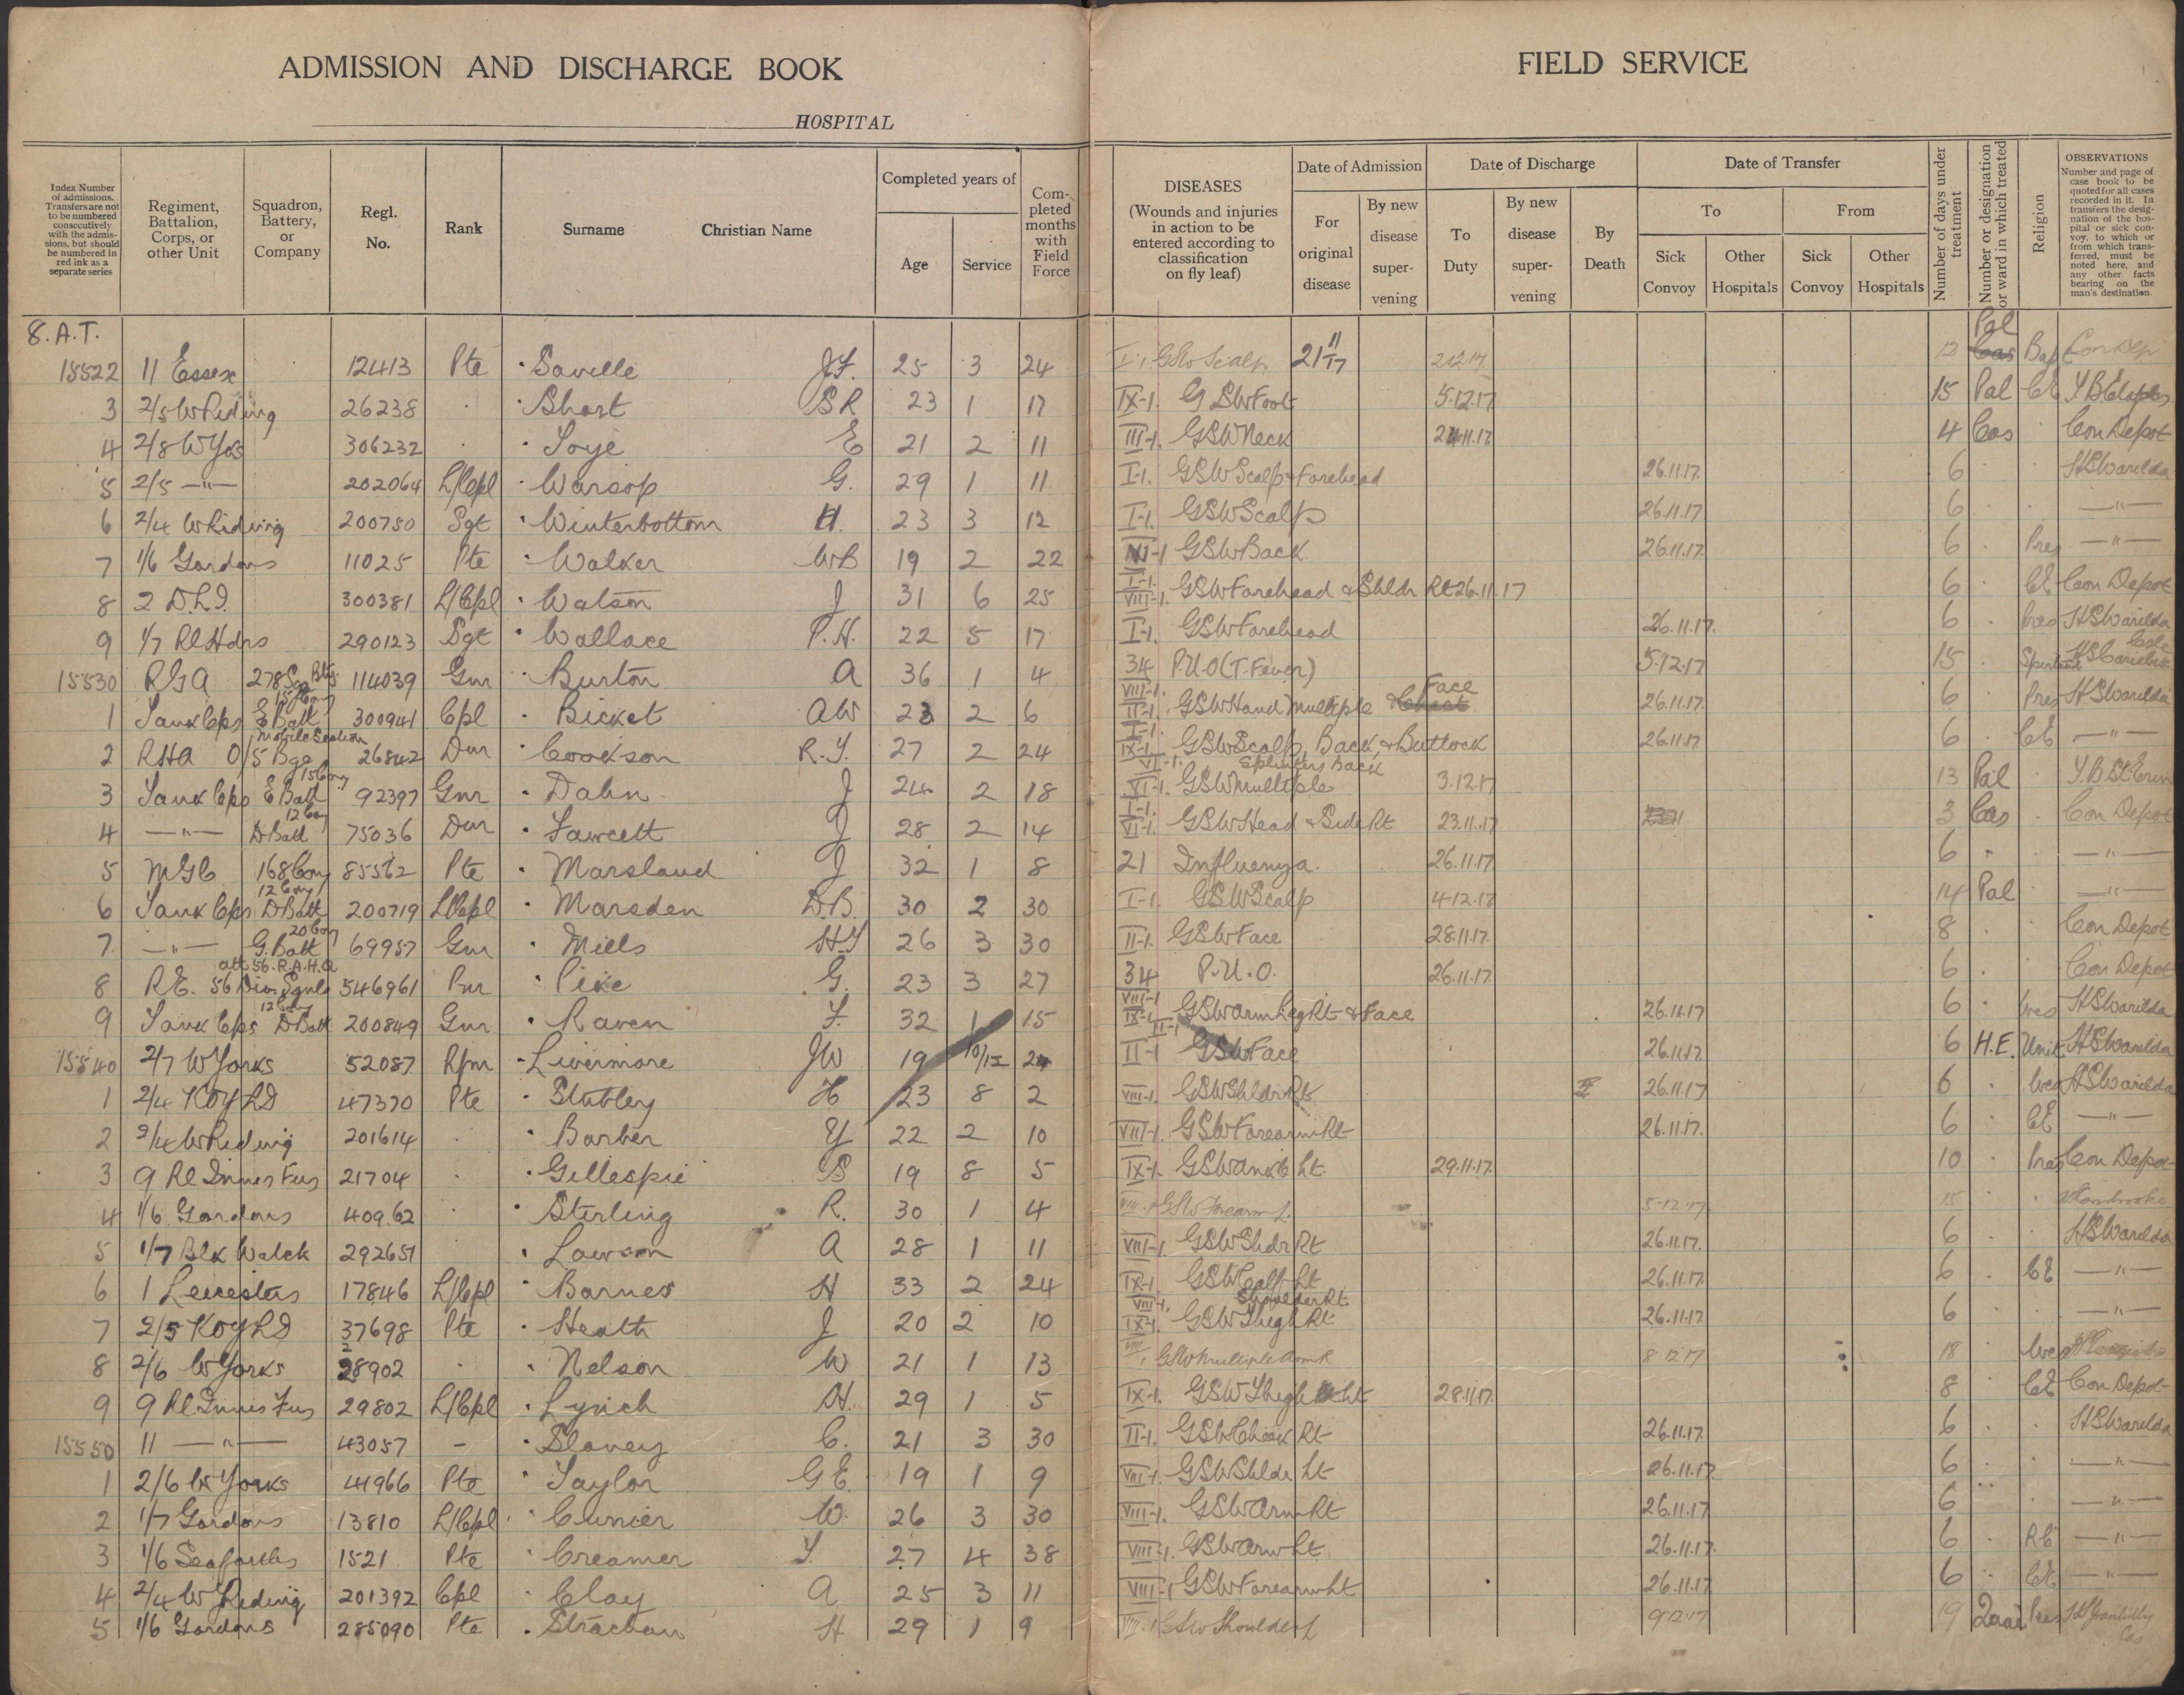 ADMISSION AND DISCHARGE BOOK
HOSPITAL
FIELD SERVICE
Index Number of admissions. Transfers are not to be numbered consecutively with the admissions, but should be numbered in red ink as a separate series
Regiment, Battalion, Corps, or other Unit
Squadron, Battery, or Company
Regl. No.
Rank
Surname
Christian Name
Completed years of
Age
Service
Completed months with Field Force
DISEASES
(Wounds and injuries in action to be entered according to classification on fly leaf)
Date of Admission
For original disease
By new disease supervening
Date of Discharge
To Duty
By new disease supervening
By Death
Date of Transfer
To
From
Sick Convoy
Other Hospitals
Sick Convoy
Other Hospitals
Number of days under treatment
Number or designation or ward in which treated
Religion
OBSERVATIONS
Number and page of case book to be quoted for all cases recorded in it. In transfers the designation of the hospital or sick convoy, to which or from which transferred, must be noted here, and any other facts bearing on the man's destination.
8. A.T.
15522 11 Essex 12413 Pte Saville J.F. 25 3 24 I-1 GSW Scalp 21 11/17 2.12.17 12 Cas Pal Bap Con Dep
3 2/5 W Riding 26238 . Short S R 23 1 17 IX-1. GSW Foot 5.12.17 15 Pal CE
4 2/8 W Yos 306232 . E 21 2 11 III-1. GSW Neck 24.11.17 4 Cas . Con Depot
5 2/5 —"— 202064 L/Cpl Warsop G. 29 1 11 I-1. GSW Scalp & Forehead 26.11.17. 6 . . HS Warilda
6 2/4 W Riding 200750 Sgt Winterbottom H. 23 3 12 I-1. GSW Scalp 26.11.17 6 . . —"—
7 1/6 Gordons 11025 Pte Walker WB 19 2 22 VI-1 GSW Back 26.11.17. 6 . Pres —"—
8 2 D.L.I. 300381 L/Cpl Watson J 31 6 25 I-1. VIII-1. GSW Forehead & Shldr Rt 26.11.17 6 . CE Con Depot
9 1/7 Rl Hdrs 290123 Sgt Wallace P.H. 22 5 17 I-1. GSW Forehead 26.11.17. 6 . Pres HS Warilda
15530 RGA 278 Sge Bty 114039 Gnr Burton A 36 1 4 34 P.U.O (T. Fever) 5.12.17 15 .
1 Tank Cps E Batt 15 Coy 300941 Cpl Bicket AW 23 2 6 VIII-1. II-1. GSW Hand Multiple & Chest Face 26.11.17. 6 . Pres HS Warilda
2 RHA O/5 Bge Mobile Section 26842 Dvr Cookson R.T. 27 2 24 I-1. IX-1. VI-1. GSW Scalp, Back, & Buttock 26.11.17. 6 . CE —"—
3 Tank Cps E Batt 15 Coy 92397 Gnr Dahn J 24 2 18 VI-1. GSW Multiple Splinters Back 3.12.17 13 Pal . Y.B St Erin
4 —"— D Batt 12 Coy 75036 Dvr Fawcett J 28 2 14 I-1. VI-1. GSW Head & Side Rt 23.11.17 3 Cas . Con Depot
5 MGC 168 Coy 85562 Pte Marsland J 32 1 8 21 Influenza. 26.11.17 6 . —"—
6 Tank Cps D Batt 12 Coy 200719 L/Cpl Marsden D.B. 30 2 30 I-1. GSW Scalp 4.12.17 14 Pal —"—
7. —"— G. Batt 20 Coy 69957 Gnr Mills HY 26 3 30 II-1. GSW Face 28.11.17. 8 . . Con Depot
8 R.E. 56 Div. Sgnls att 56. R.A.H.Q 546961 Pnr Pike G. 23 3 27 34 P.U.O. 26.11.17. 6 . Con Depot
9 Tank Cps D Batt 12 Coy 200849 Gnr Raven F. 32 1 15 VIII-1 IX-1. II-1 GSW Arm Leg Rt & Face 26.11.17 6 . Wes HS Warilda
15540 2/7 W Yorks 52087 Rfm Livermore JW 19 10/12 24 II-1 GSW Face 26.11.17. 6 H.E. Unit HS Warilda
1 2/4 KOYLI 47370 Pte Stubley H 23 8 2 VIII-1. GSW Shldr Rt 26.11.17 6 . Wes HS Warilda
2 2/4 W Riding 201614 . Barber Y 22 2 10 VIII-1. GSW Forearm Rt 26.11.17. 6 . CE —"—
3 9 Rl Innis Fus 21704 . Gillespie S 19 8 5 IX-1. GSW Ankle Lt. 29.11.17. 10 . Pres Con Depot
4 1/6 Gordons 40962 . Sterling R. 30 1 4 VIII-1 GSW Forearm L. 5-12-17 15 . .
5 1/7 Blk Watch 292651 Lawson A 28 1 11 VIII-1. GSW Shdr Rt 26.11.17. 6 . HS Warilda
6 1 Leicesters 17846 L/Cpl Barnes H 33 2 24 IX-1. GSW Calf Lt 26.11.17 6 . CE —"—
7 2/5 KOYLI 37698 Pte Heath J 20 2 10 VIII-1. IX-1. GSW Thigh Rt Shoulder Rt 26.11.17 6 . —"—
8 2/6 W Yorks 28902 . Nelson W 21 1 13 VIII-1 GSW Multiple Arm R 8.12.17 18 . Wes
9 9 Rl Innis Fus 29802 L/Cpl Lynch H. 29 1 5 IX-1. GSW Thigh Lt 28.11.17. 8 . CE Con Depot
15550 11 —"— 43057 - Slavey C. 21 3 30 II-1. GSW Cheek Rt 26.11.17. 6 . . HS Warilda
1 2/6 W Yorks 41966 Pte Taylor G E. 19 1 9 VIII-1. GSW Shldr Lt 26.11.17. 6 —"—
2 1/7 Gordons 13810 L/Cpl W. 26 3 30 VIII-1. GSW Arm Rt 26.11.17. 6 —"—
3 1/6 Seaforths 1521 Pte Creamer T. 27 4 38 VIII-1. GSW Arm Lt 26.11.17. 6 . RC —"—
4 2/4 W Riding 201392 Cpl Clay A 25 3 11 VIII-1 GSW Forearm Lt 26.11.17 6 . CE —"—
5 1/6 Gordons 285090 Pte Strachan H 29 1 9 VIII.1 GSW Shoulder L 9.12.17 19 Pres